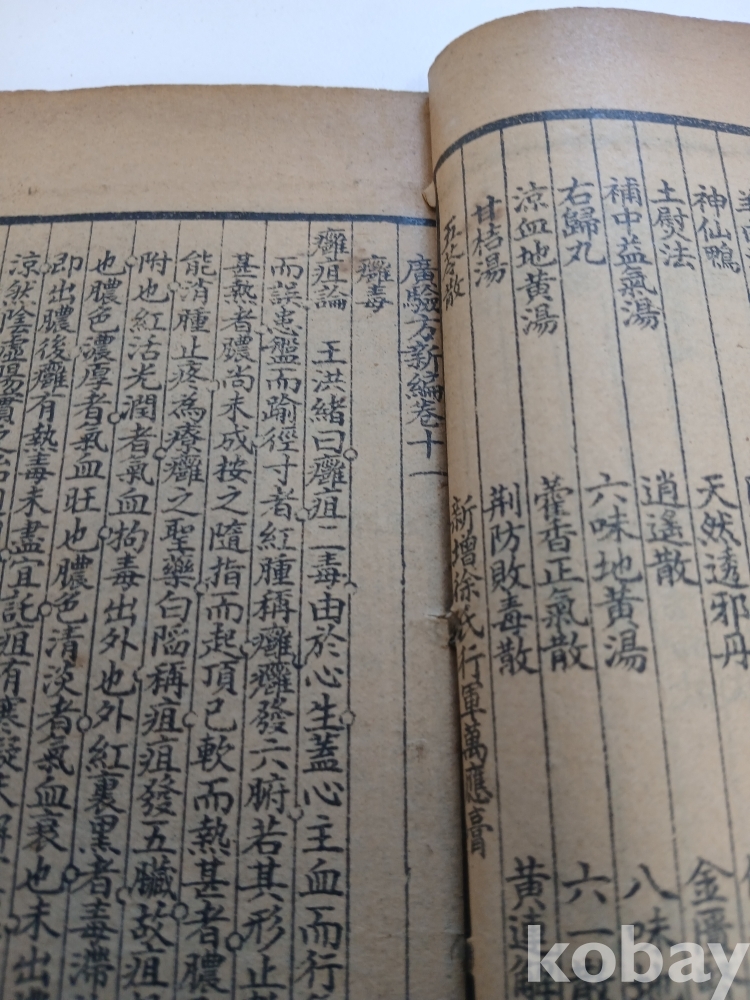 神仙鴨
天然透邪丹
金匱
土慰法
逍遙散
八味
補中益氣湯
六味地黃湯
六一
右歸丸
藿香正氣散
黃連
涼血地黃湯
荆防敗毒散
甘桔湯
新增徐氏行軍萬應膏
廣驗方新編卷十一
癰毒
癰疽論 王洪緒曰癰疽二毒由於心生蓋心主血而行
而誤患盤而踰徑寸者紅腫稱癰癰發六腑若其形止
甚熱者膿尚未成按之隨指而起頂已軟而熱甚者膿
能消腫止疼為療癰之聖藥白陷稱疽疽發五臟故疽
附也紅活光潤者氣血拘毒出外也外紅裏黑者毒滯
也膿色濃厚者氣血旺也膿色清淡者氣血衰也未出
即出膿後癰有熱毒未盡宜託疽有寒凝未解
涼然陰虛陽實
kobay